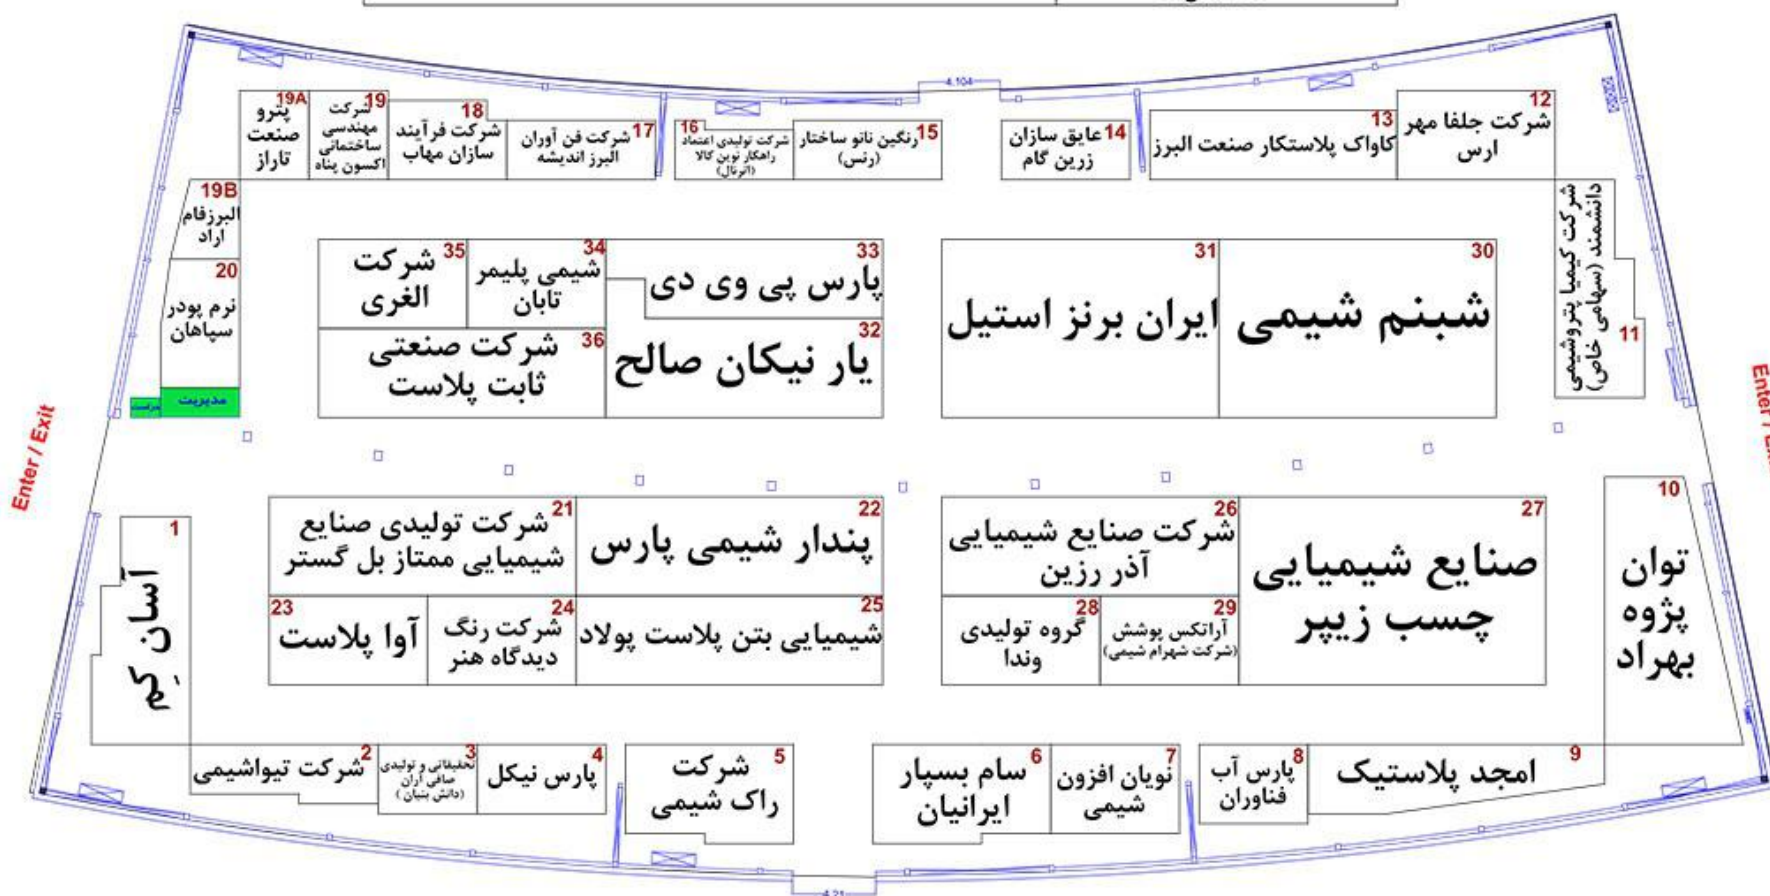 4.104
19A
پترو
صنعت
تاراز
19
شرکت
مهندسی
ساختمانی
اکسون پناه
18
شرکت فرآیند
سازان مهاب
17
شرکت فن آوران
البرز اندیشه
16
شرکت تولیدی اعتماد
راهکار نوین کالا
(اترنال)
15
رنگین نانو ساختار
(رنس)
14
عایق سازان
زرین گام
13
کاواک پلاستکار صنعت البرز
12
شرکت جلفا مهر
ارس
19B
البرزفام
اراد
20
نرم پودر
سپاهان
مدیریت
حراست
35
شرکت
الغری
34
شیمی پلیمر
تابان
33
پارس پی وی دی
36
شرکت صنعتی
ثابت پلاست
32
یار نیکان صالح
31
ایران برنز استیل
30
شبنم شیمی
11
شرکت کیمیا پتروشیمی
دانشمند (سهامی خاص)
Enter / Exit
Enter /
1
آسان کِم
21
شرکت تولیدی صنایع
شیمیایی ممتاز بل گستر
22
پندار شیمی پارس
23
آوا پلاست
24
شرکت رنگ
دیدگاه هنر
25
شیمیایی بتن پلاست پولاد
26
شرکت صنایع شیمیایی
آذر رزین
27
صنایع شیمیایی
چسب زیپر
28
گروه تولیدی
وندا
29
آراتکس پوشش
(شرکت شهرام شیمی)
10
توان
پژوه
بهراد
2
شرکت تیواشیمی
3
تحقیقاتی و تولیدی
صافی آران
(دانش بنیان)
4
پارس نیکل
5
شرکت
راک شیمی
6
سام بسپار
ایرانیان
7
نویان افزون
شیمی
8
پارس آب
فناوران
9
امجد پلاستیک
4.21